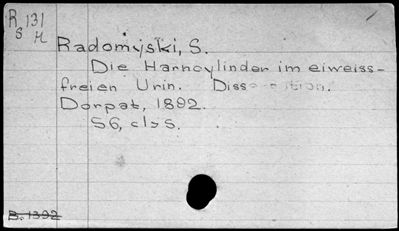 R 131
S H
Radomyski, S.
Die Harncylinder im eiweiss-
freien Urin. Dissertation.
Dorpat, 1892.
56, cls S.
B. 1392